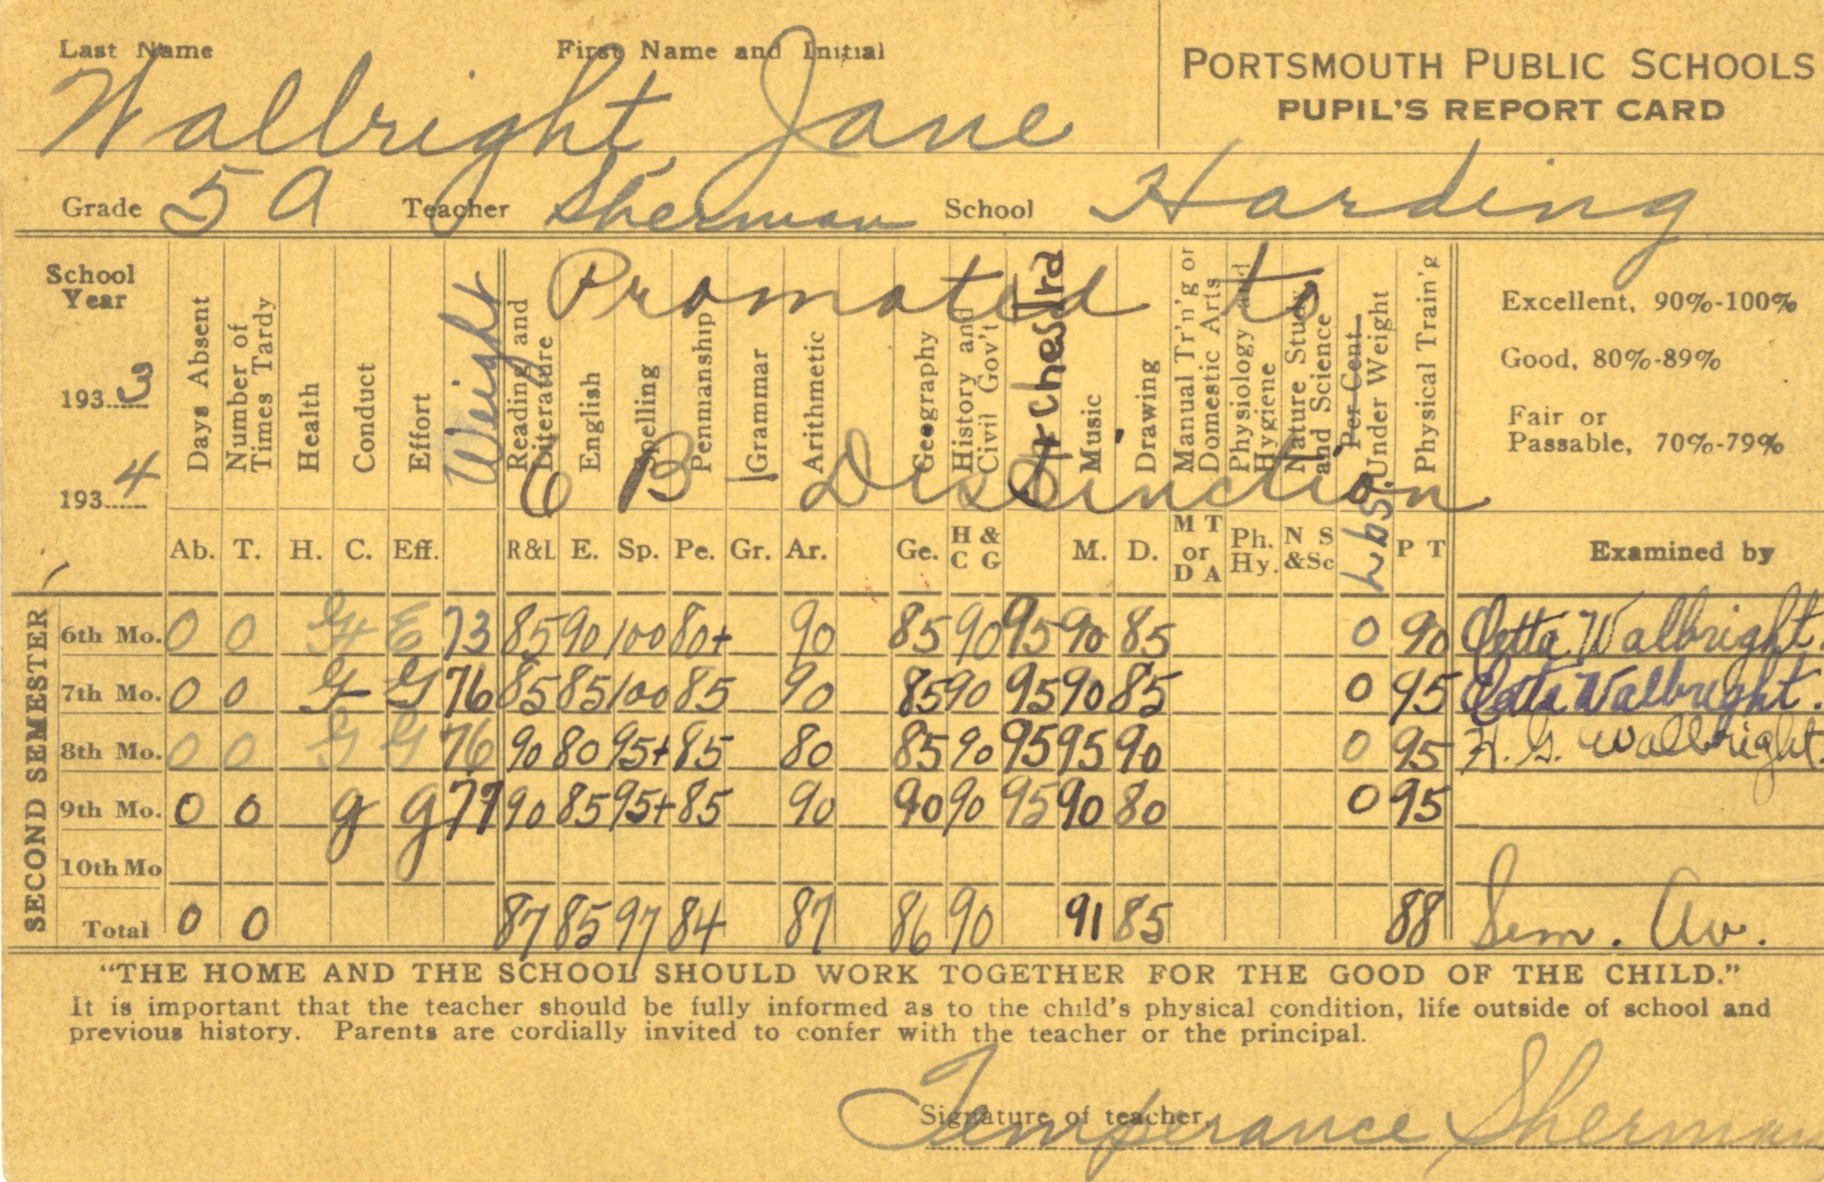 Last Name First Name and Initial
Walbright, Jane
PORTSMOUTH PUBLIC SCHOOLS
PUPIL'S REPORT CARD
Grade 5A Teacher Sherman School Harding
School Year
1933
1934
Days Absent
Number of Times Tardy
Health
Conduct
Effort
Weight
Reading and Literature
English
Spelling
Penmanship
Grammar
Arithmetic
Geography
History and Civil Gov't
Orchestra
Music
Drawing
Manual Tr'n'g or Domestic Arts
Physiology and Hygiene
Nature Study and Science
Per Cent Under Weight
Lbs.
Physical Train'g
Promoted to
6B - Distinction
Excellent, 90%-100%
Good, 80%-89%
Fair or
Passable, 70%-79%
Ab. T. H. C. Eff. R&L E. Sp. Pe. Gr. Ar. Ge. H & C G M. D. M T or D A Ph. Hy. N S &Sc P T Examined by
SECOND SEMESTER
6th Mo. 0 0 G+ E 73 85 90 100 80+ 90 85 90 95 90 85 0 90 Etta Walbright.
7th Mo. 0 0 G G 76 85 85 100 85 90 85 90 95 90 85 0 95 Etta Walbright.
8th Mo. 0 0 G G 76 90 80 95+ 85 80 85 90 95 95 90 0 95 H. G. Walbright.
9th Mo. 0 0 g g 77 90 85 95+ 85 90 90 90 95 90 80 0 95
10th Mo
Total 0 0 87 85 97 84 87 86 90 91 85 88 Sem. Av.
"THE HOME AND THE SCHOOL SHOULD WORK TOGETHER FOR THE GOOD OF THE CHILD."
It is important that the teacher should be fully informed as to the child's physical condition, life outside of school and
previous history. Parents are cordially invited to confer with the teacher or the principal.
Signature of teacher, Temperance Sherman